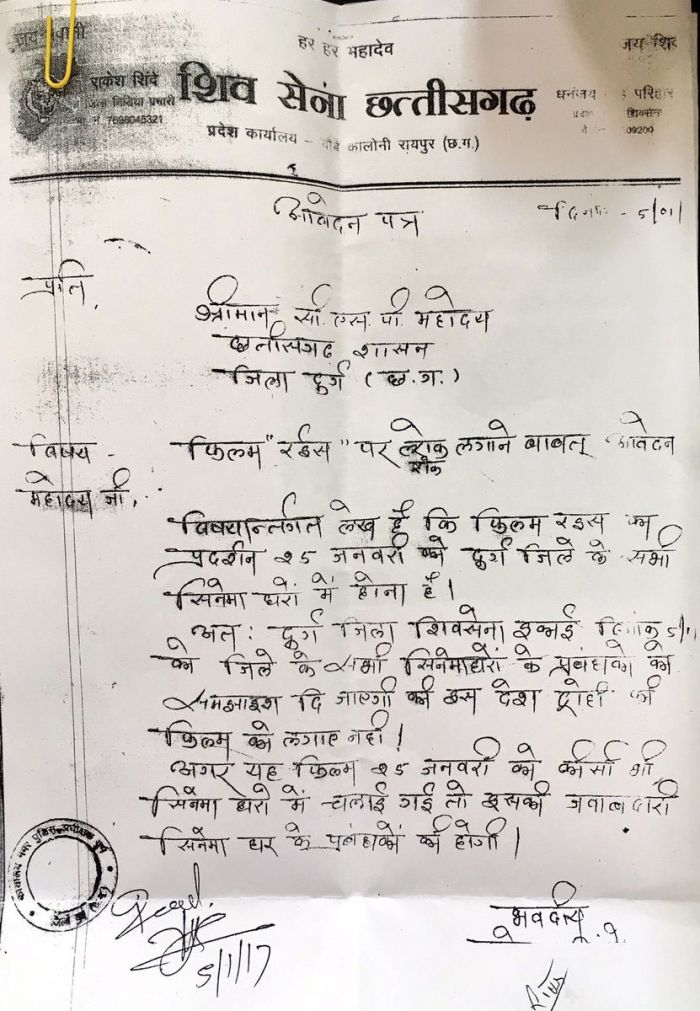 हर हर महादेव
जय शिव
राकेश शिंदे
जिला मिडिया प्रभारी
7698045321
शिव सेना छत्तीसगढ़
धनंजय परिहार
शिवसेना
09200
प्रदेश कार्यालय - चौबे कालोनी रायपुर (छ.ग.)
आवेदन पत्र
दिनांक - 5/01/
प्रति,
श्रीमान सी. एस. पी. महोदय
छत्तीसगढ शासन
जिला दुर्ग (छ.ग.)
विषय - फिल्म "रईस" पर रोक लगाने बाबत् आवेदन
महोदय जी,
विषयान्तर्गत लेख है कि फिल्म रईस का
प्रदर्शन 25 जनवरी को दुर्ग जिले के सभी
सिनेमा घरों में होना है।
अत: दुर्ग जिला शिवसेना इकाई दिनांक 5/1
को जिले के सभी सिनेमाघरों के प्रबंधको को
समझाइश दि जाएगी की इस देश द्रोही की
फिल्म को लगाए नही!
अगर यह फिल्म 25 जनवरी को कीसी भी
सिनेमा घरो में चलाई गई तो इसकी जवाबदारी
सिनेमा घर के प्रबंधकों की होगी।
कार्यालय नगर पुलिस अधीक्षक दुर्ग
5/1/17
भवदीय